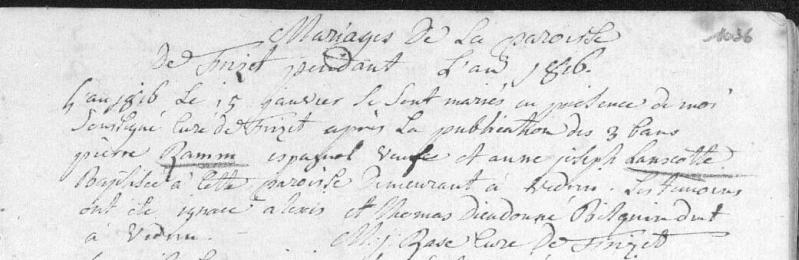 Mariages De La paroisse
1036
De Frizet pendant L'an 1816.
L'an 1816 Le 15 janvier se sont mariés en présence de moi
Soussigné Curé de Frizet après La publication des 3 bans
pierre Ramm espagnol veufe et anne joseph Lanscotte
Baptisée à cette paroisse Demeurant à vedrin. Les temoins
ont été ignace alexis et Thomas Dieudonné
à Vedrin.
M. j. Rase Curé De Frizet